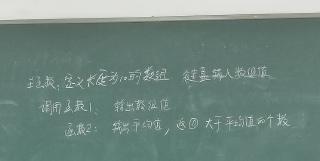 主函数，定义长度为10的数组 键盘输入数组值
调用函数1、 输出数组值
函数2： 输出平均值，返回 大于平均值的个数